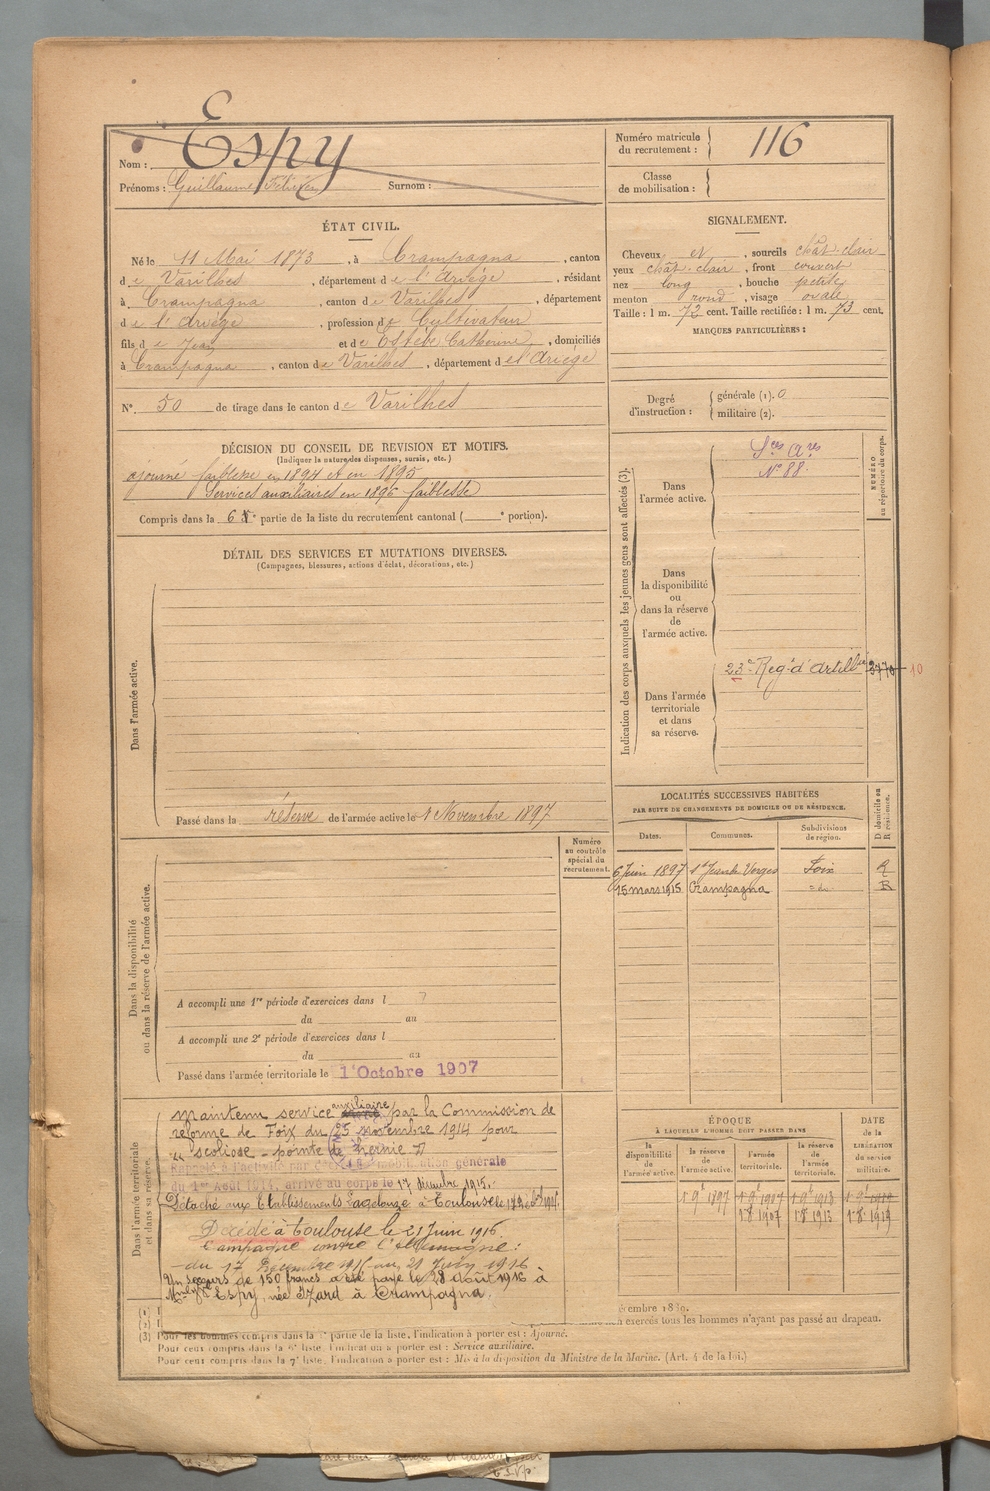 Nom : Espy
Prénoms : Guillaume Surnom :
Numéro matricule du recrutement : 116
Classe de mobilisation :
ÉTAT CIVIL.
Né le 11 Mai 1873, à Crampagna, canton
de Varilhes, département de l'Ariège, résidant
à Crampagna, canton de Varilhes, département
de l'Ariège, profession de Cultivateur
fils de Jean et de Estèbe Catherine, domiciliés
à Crampagna, canton de Varilhes, département de l'Ariège
N°. 50 de tirage dans le canton de Varilhes
SIGNALEMENT.
Cheveux et, sourcils chât. clair
yeux chât. clair, front couvert
nez long, bouche petite
menton rond, visage ovale
Taille : 1 m. 72 cent. Taille rectifiée : 1 m. 73 cent.
MARQUES PARTICULIÈRES :
Degré d'instruction : générale (1). 0
militaire (2).
DÉCISION DU CONSEIL DE REVISION ET MOTIFS.
(Indiquer la nature des dispenses, sursis, etc.)
ajourné faiblesse en 1894 et en 1895
Services auxiliaires en 1896 faiblesse
Compris dans la 6e partie de la liste du recrutement cantonal ( e portion).
DÉTAIL DES SERVICES ET MUTATIONS DIVERSES.
(Campagnes, blessures, actions d'éclat, décorations, etc.)
Dans l'armée active.
Passé dans la réserve de l'armée active le 1 Novembre 1897
Indication des corps auxquels les jeunes gens sont affectés (3).
NUMÉRO au répertoire du corps.
Dans l'armée active.
Sces Ares
N° 88.
Dans la disponibilité ou dans la réserve de l'armée active.
Dans l'armée territoriale et dans sa réserve.
23e Regt d'Artillie
10
LOCALITÉS SUCCESSIVES HABITÉES
PAR SUITE DE CHANGEMENTS DE DOMICILE OU DE RÉSIDENCE.
Dates. Communes. Subdivisions de région. D domicile ou R résidence.
6 Juin 1897 St Jean de Verges Foix R
15 mars 1915 Crampagna =do= R
Numéro au contrôle spécial du recrutement.
Dans la disponibilité ou dans la réserve de l'armée active.
A accompli une 1re période d'exercices dans l
du au
A accompli une 2e période d'exercices dans l
du au
Passé dans l'armée territoriale le 1'Octobre 1907
Dans l'armée territoriale et dans sa réserve.
maintenu service auxiliaire par la Commission de
réforme de Foix du 25 novembre 1914 pour
"scoliose - pointe de hernie D
Rappelé à l'activité par décret de mobilisation générale
du 1er Août 1914, arrivé au corps le 17 décembre 1915.
Détaché aux Etablissements à Toulouse le
Décédé à Toulouse le 21 Juin 1916.
Campagne contre l'Allemagne :
du 17 Décembre 1915 au 21 Juin 1916
Un secours de 150 francs a été payé le 28 août 1916 à
Espy, née Izard à Crampagna.
ÉPOQUE
À LAQUELLE L'HOMME DOIT PASSER DANS
la disponibilité de l'armée active. la réserve de l'armée active. l'armée territoriale. la réserve de l'armée territoriale.
DATE de la LIBÉRATION du service militaire.
1 9e 1897 1 9e 1907 1 9e 1913
1 8 1907 1 8 1913 1 8 1919
(1)
(2) exercés tous les hommes n'ayant pas passé au drapeau.
(3) Pour les hommes compris dans la partie de la liste, l'indication à porter est : Ajourné.
Pour ceux compris dans la liste, l'indication à porter est : Service auxiliaire.
Pour ceux compris dans la 7e liste, l'indication à porter est : Mis à la disposition du Ministre de la Marine. (Art. 4 de la loi.)